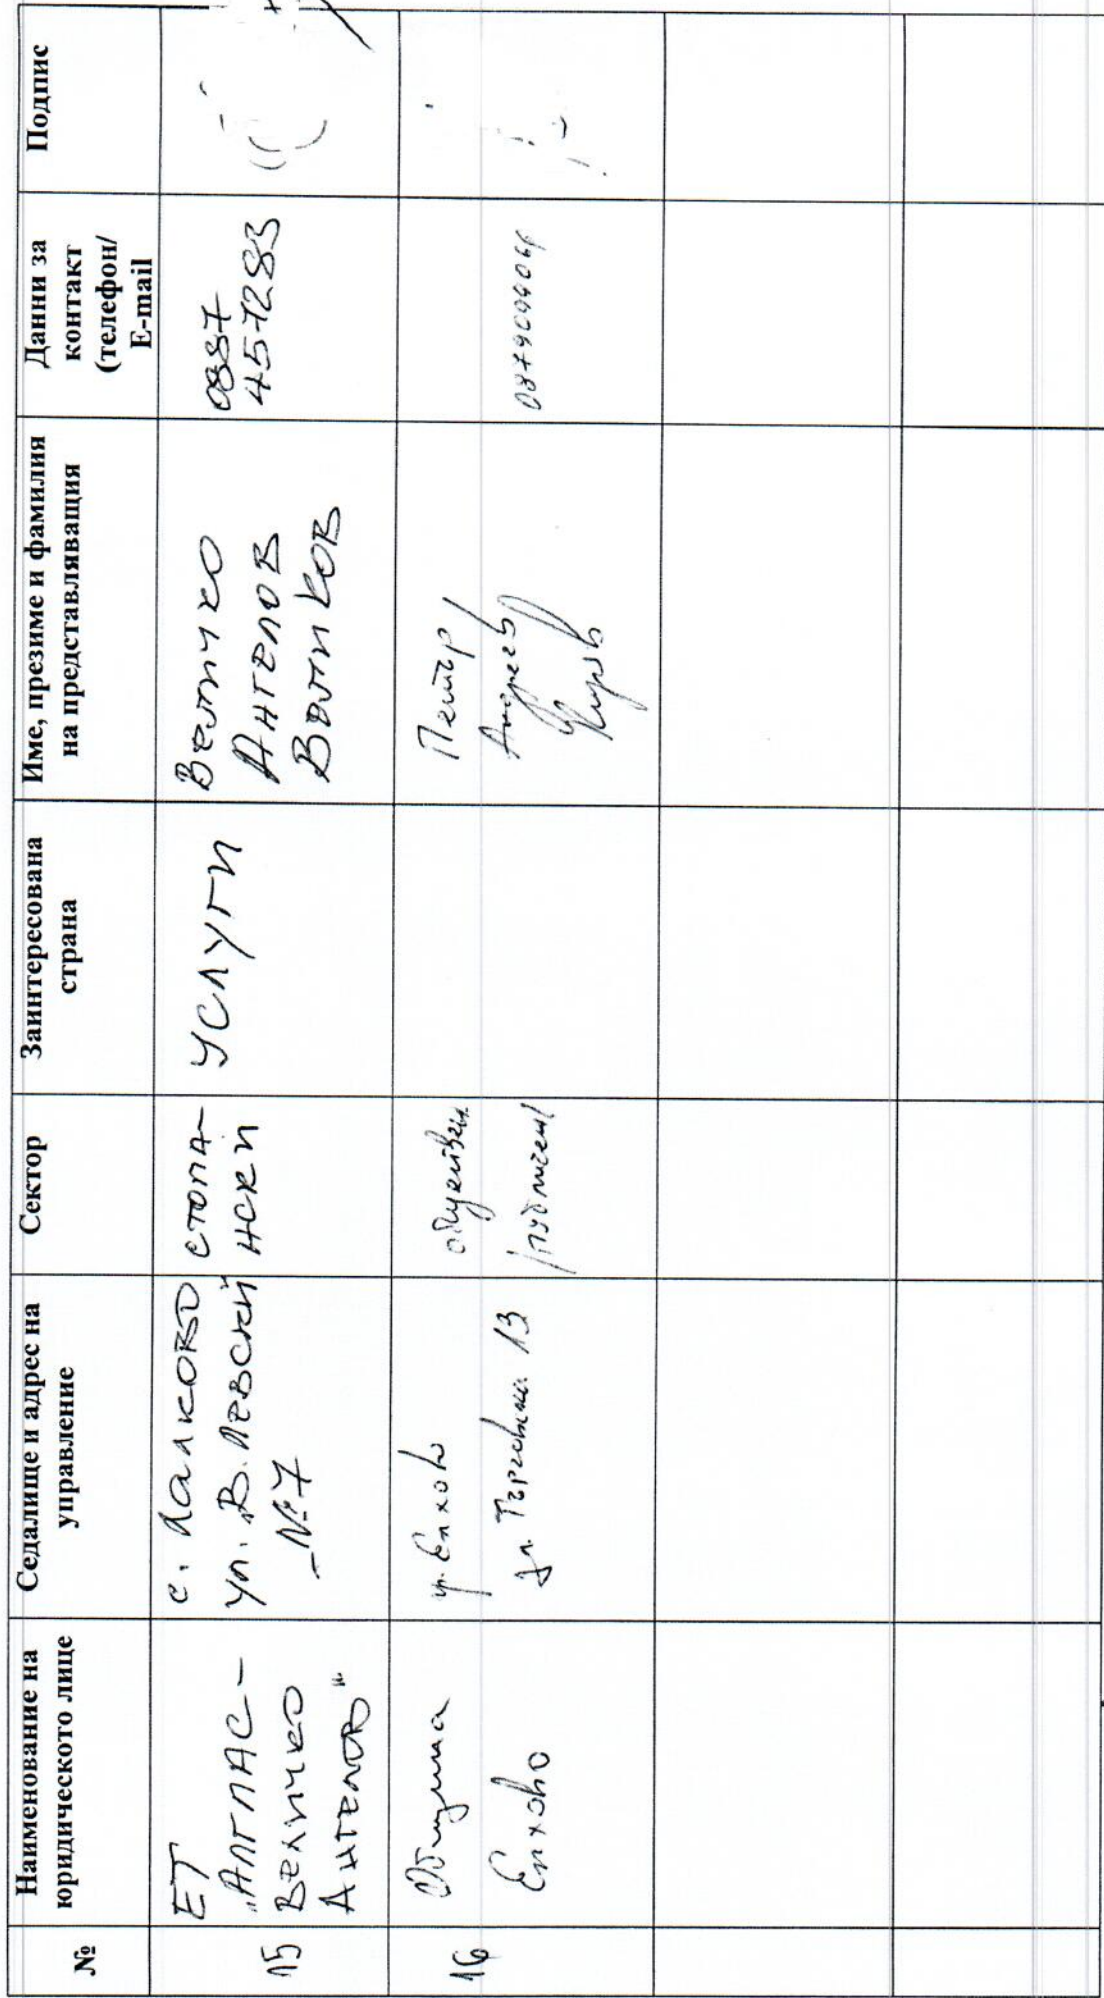 №
Наименование на
юридическото лице
Седалище и адрес на
управление
Сектор
Заинтересована
страна
Име, презиме и фамилия
на представляващия
Данни за
контакт
(телефон/
E-mail
Подпис
15
ЕТ
„АЛГЛАС –
ВЕЛИЧКО
АНГЕЛОВ"
с. ЛАЛКОВО
ул. „В. ЛЕВСКИ"
№7
СТОПА-
НСКИ
УСЛУГИ
ВЕЛИЧКО
АНГЕЛОВ
ВЪЛКОВ
0887
457283
16
Община
Елхово
гр. Елхово
ул. Търговска 13
обществен
/публичен/
Петър
Андреев
Киров